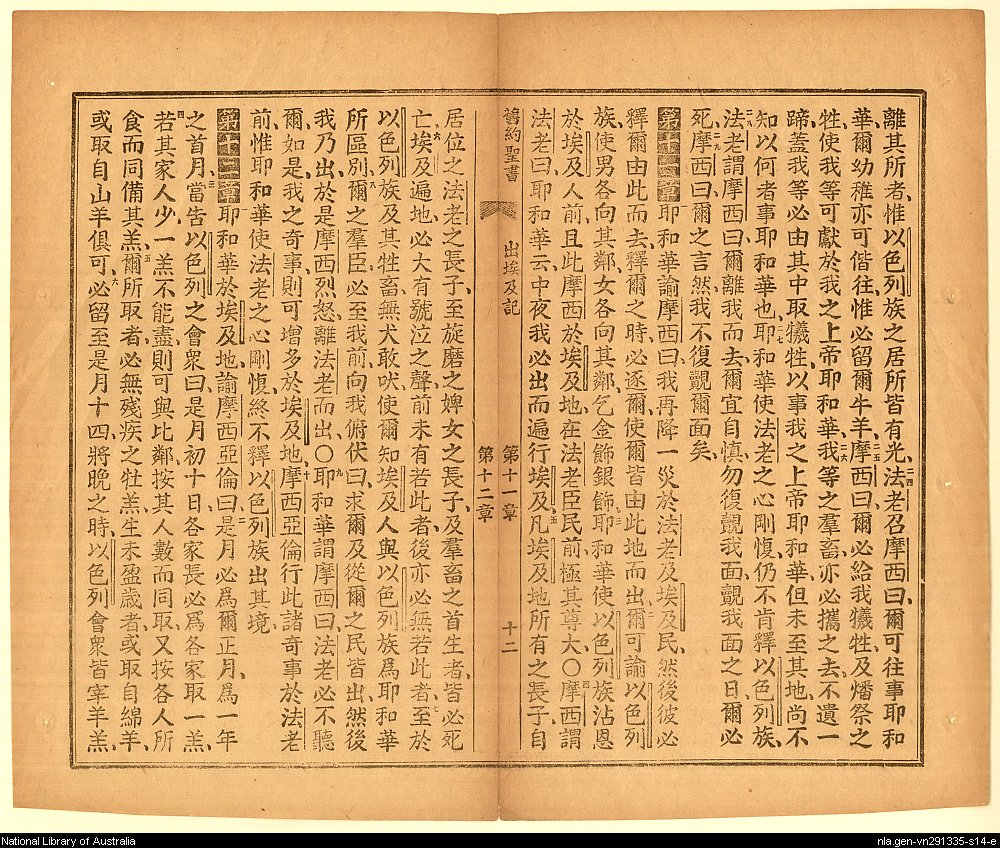 離其所者、惟以色列族之居所皆有光、二四法老召摩西曰、爾可往事耶和
華、爾幼稚亦可偕往、惟必留爾牛羊、二五摩西曰、爾必給我犧牲、及燔祭之
牲、使我等可獻於我之上帝耶和華、二六我等之羣畜亦必攜之去、不遺一
蹄、蓋我等必由其中取犧牲、以事我之上帝耶和華、但未至其地、尚不
知以何者事耶和華也、二七耶和華使法老之心剛愎、仍不肯釋以色列族、
二八法老謂摩西曰、爾離我而去、爾宜自慎、勿復覿我面、覿我面之日、爾必
死、二九摩西曰、爾之言然、我不復覿爾面矣、
第十一章 耶和華諭摩西曰、我再降一災於法老及埃及民、然後彼必
釋爾由此而去、釋爾之時、必逐爾、使爾皆由此地而出、二爾可諭以色列
族、使男各向其鄰、女各向其鄰、乞金飾銀飾、三耶和華使以色列族沾恩
於埃及人前、且此摩西於埃及地、在法老臣民前、極其尊大、〇四摩西謂
法老曰、耶和華云、中夜我必出而遍行埃及、五凡埃及地所有之長子、自
舊約聖書 出埃及記 第十一章 第十二章 十二
居位之法老之長子、至旋磨之婢女之長子、及羣畜之首生者、皆必死
亡、六埃及遍地必大有號泣之聲、前未有若此者、後亦必無若此者、七至於
以色列族及其牲畜、無犬敢吠、使爾知埃及人與以色列族、爲耶和華
所區別、八爾之羣臣必至我前、向我俯伏曰、求爾及從爾之民皆出、然後
我乃出、於是摩西烈怒、離法老而出、〇九耶和華謂摩西曰、法老必不聽
爾、如是我之奇事、則可增多於埃及地、十摩西亞倫行此諸奇事於法老
前、惟耶和華使法老之心剛愎、終不釋以色列族出其境、
第十二章 耶和華於埃及地、諭摩西亞倫曰、二是月必爲爾正月、爲一年
之首月、三當告以色列之會衆曰、是月初十日、各家長必爲各家取一羔、
四若其家人少、一羔不能盡、則可與比鄰按其人數而同取、又按各人所
食而同備其羔、五爾所取者、必無殘疾之牡羔、生未盈歲者、或取自綿羊、
或取自山羊俱可、六必留至是月十四、將晚之時、以色列會衆皆宰羊羔、
National Library of Australia
nla.gen-vn291335-s14-e